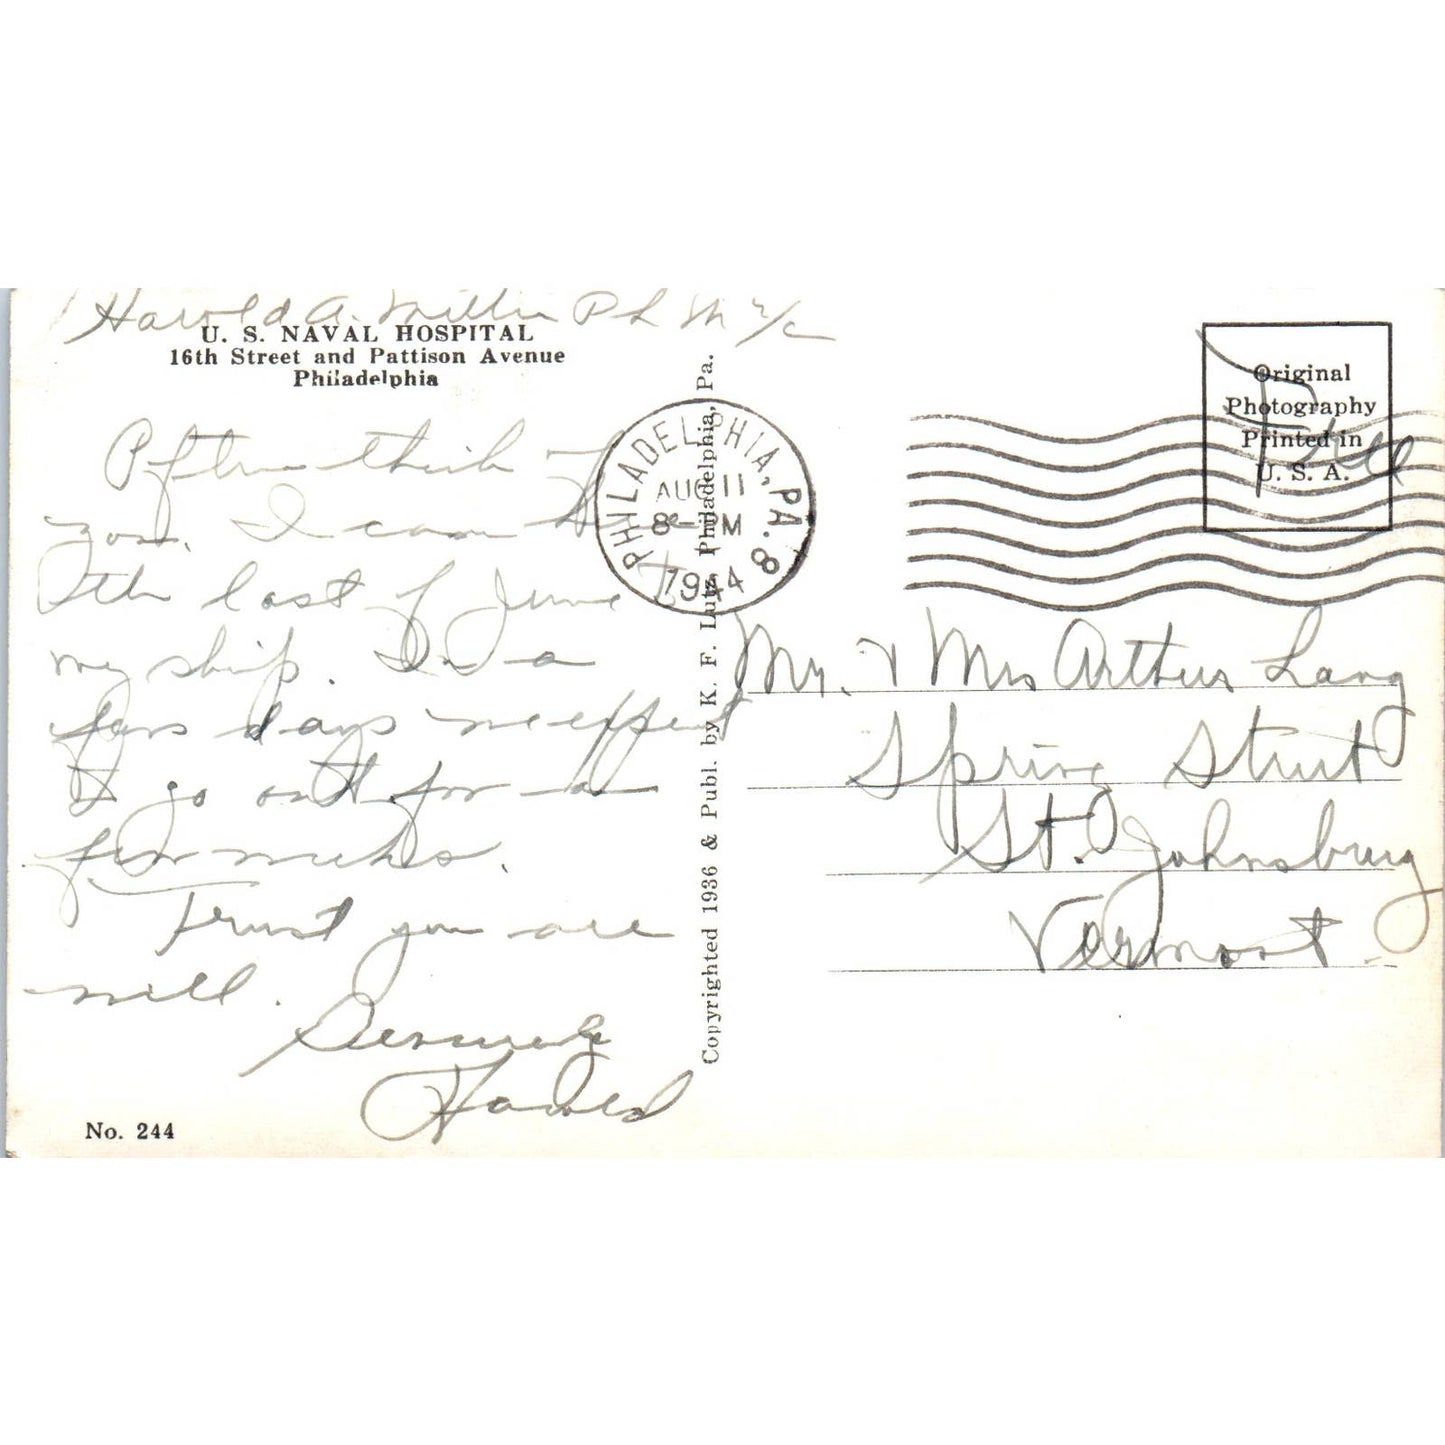 Harold A. Miller Ph M 2/c
U. S. NAVAL HOSPITAL
16th Street and Pattison Avenue
Philadelphia
Often think of
you. I came
the last of June to
my ship. In a
few days we expect
to go out for a
few weeks.
Trust you are
well.
Sincerely
Harold
No. 244
Copyrighted 1936 & Publ. by K. F. Lutz, Philadelphia, Pa.
PHILADELPHIA, PA. 8
AUG 11
8 - PM
1944
Original
Photography
Printed in
U. S. A.
Free
Mr. & Mrs Arthur Lang
Spring Street
St. Johnsburg
Vermont.